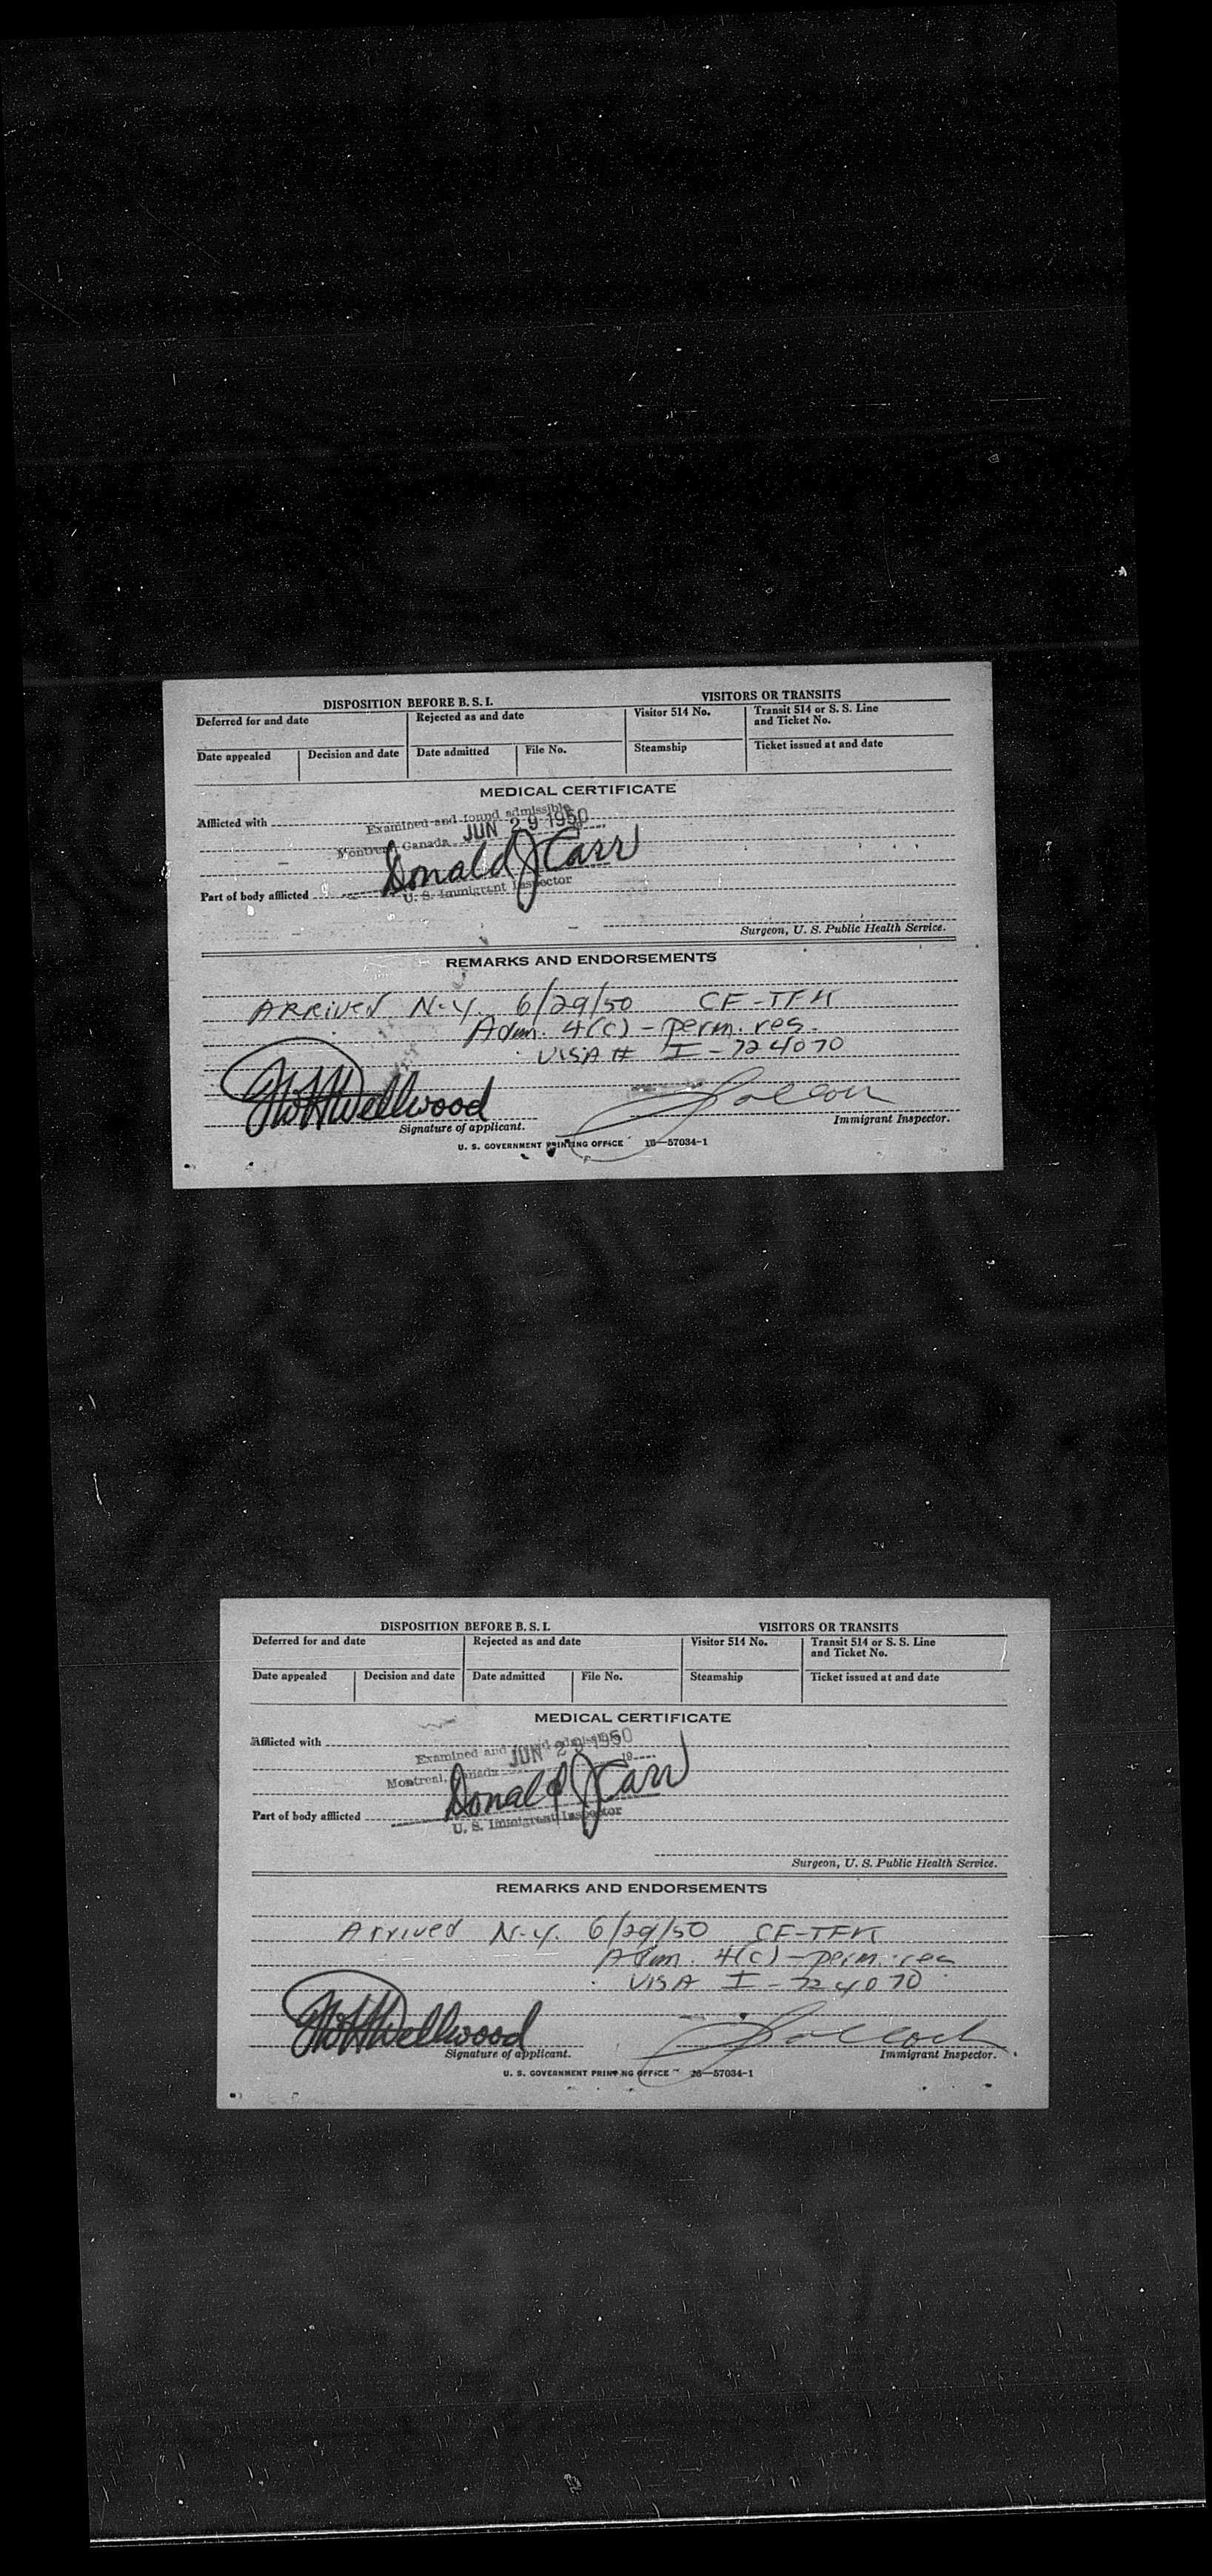 DISPOSITION BEFORE B. S. I.
VISITORS OR TRANSITS
Deferred for and date
Rejected as and date
Visitor 514 No.
Transit 514 or S. S. Line
and Ticket No.
Date appealed
Decision and date
Date admitted
File No.
Steamship
Ticket issued at and date
MEDICAL CERTIFICATE
Afflicted with
Examined and found admissible
Montreal, Canada JUN 29 1950
Donald J Carr
U. S. Immigrant Inspector
Part of body afflicted
Surgeon, U. S. Public Health Service.
REMARKS AND ENDORSEMENTS
ARRIVED N.Y. 6/29/50 CF-TFK
Adm. 4(c) - perm. res.
VISA # I-724070
Wellwood
Signature of applicant.
Immigrant Inspector.
U. S. GOVERNMENT PRINTING OFFICE 16—57034-1
DISPOSITION BEFORE B. S. I.
VISITORS OR TRANSITS
Deferred for and date
Rejected as and date
Visitor 514 No.
Transit 514 or S. S. Line
and Ticket No.
Date appealed
Decision and date
Date admitted
File No.
Steamship
Ticket issued at and date
MEDICAL CERTIFICATE
Afflicted with
Examined and found admissible
JUN 29 1950
Montreal, Canada 19
Donald J Carr
U. S. Immigrant Inspector
Part of body afflicted
Surgeon, U. S. Public Health Service.
REMARKS AND ENDORSEMENTS
Arrived N.Y. 6/29/50 CF-TFK
Adm. 4(c) - perm. res
VISA I-724070
Wellwood
Signature of applicant.
Immigrant Inspector.
U. S. GOVERNMENT PRINTING OFFICE 16—57034-1